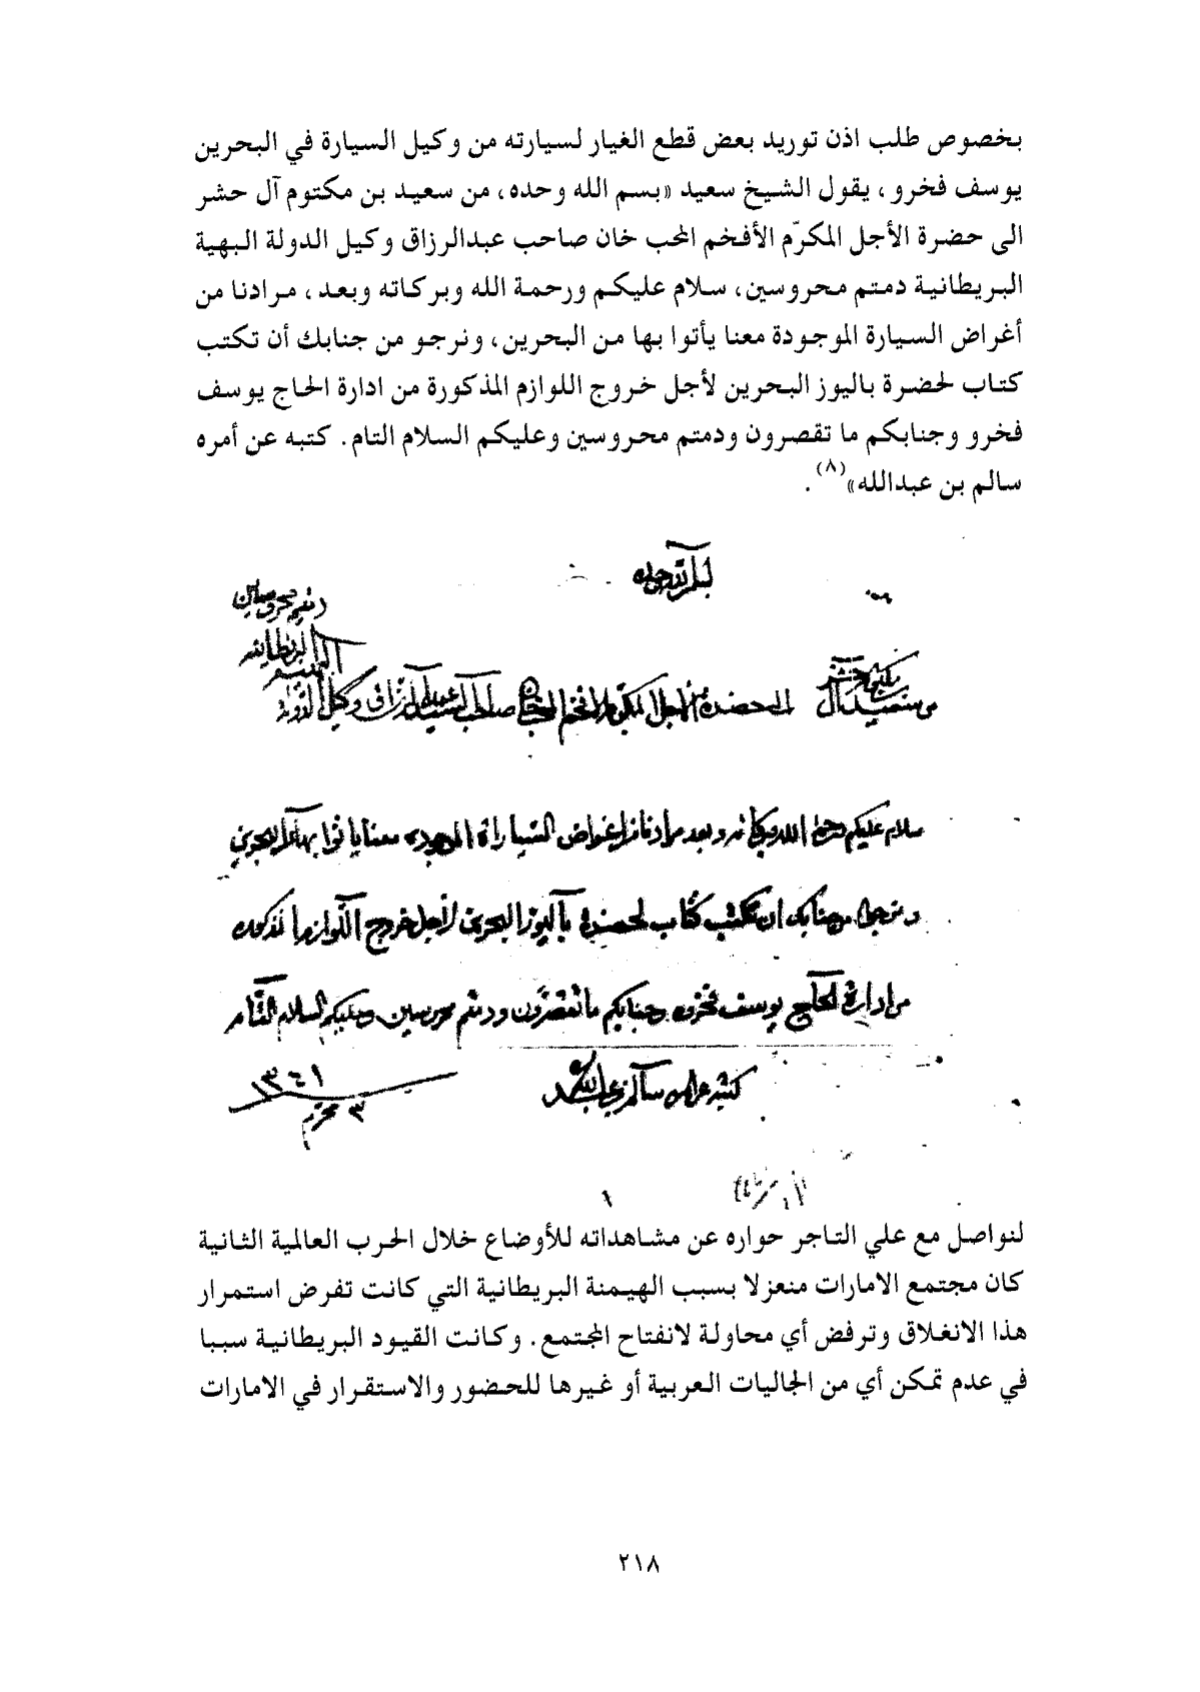 بخصوص طلب اذن توريد بعض قطع الغيار لسيارته من وكيل السيارة في البحرين
يوسف فخرو، يقول الشيخ سعيد «بسم الله وحده، من سعيد بن مكتوم آل حشر
الى حضرة الأجل المكرّم الأفخم المحب خان صاحب عبدالرزاق وكيل الدولة البهية
البريطانية دمتم محروسين، سلام عليكم ورحمة الله وبركاته وبعد، مرادنا من
أغراض السيارة الموجودة معنا يأتوا بها من البحرين، ونرجو من جنابك أن تكتب
كتاب لحضرة باليوز البحرين لأجل خروج اللوازم المذكورة من ادارة الحاج يوسف
فخرو وجنابكم ما تقصرون ودمتم محروسين وعليكم السلام التام. كتبه عن أمره
سالم بن عبدالله»(٨).
بسم الله وحده
دمتم محروسين
البهية البريطانية
من سعيد بن مكتوم آل حشر الى حضرة الأجل المكرم الأفخم المحب خان صاحب عبدالرزاق وكيل الدولة
سلام عليكم ورحمة الله وبركاته وبعد مرادنا من اغراض السيارة الموجوده معنا يأتوا بها من البحرين
ونرجوا من جنابك ان تكتب كتاب لحضرة باليوز البحرين لأجل خروج اللوازم المذكوره
من ادارة الحاج يوسف فخرو وجنابكم ما تقصرون ودمتم محروسين وعليكم السلام التام
كتبه عن امره سالم بن عبدالله
٣ محرم ١٣٦١
لنواصل مع علي التاجر حواره عن مشاهداته للأوضاع خلال الحرب العالمية الثانية
كان مجتمع الامارات منعزلا بسبب الهيمنة البريطانية التي كانت تفرض استمرار
هذا الانغلاق وترفض أي محاولة لانفتاح المجتمع. وكانت القيود البريطانية سببا
في عدم تمكن أي من الجاليات العربية أو غيرها للحضور والاستقرار في الامارات
٢١٨